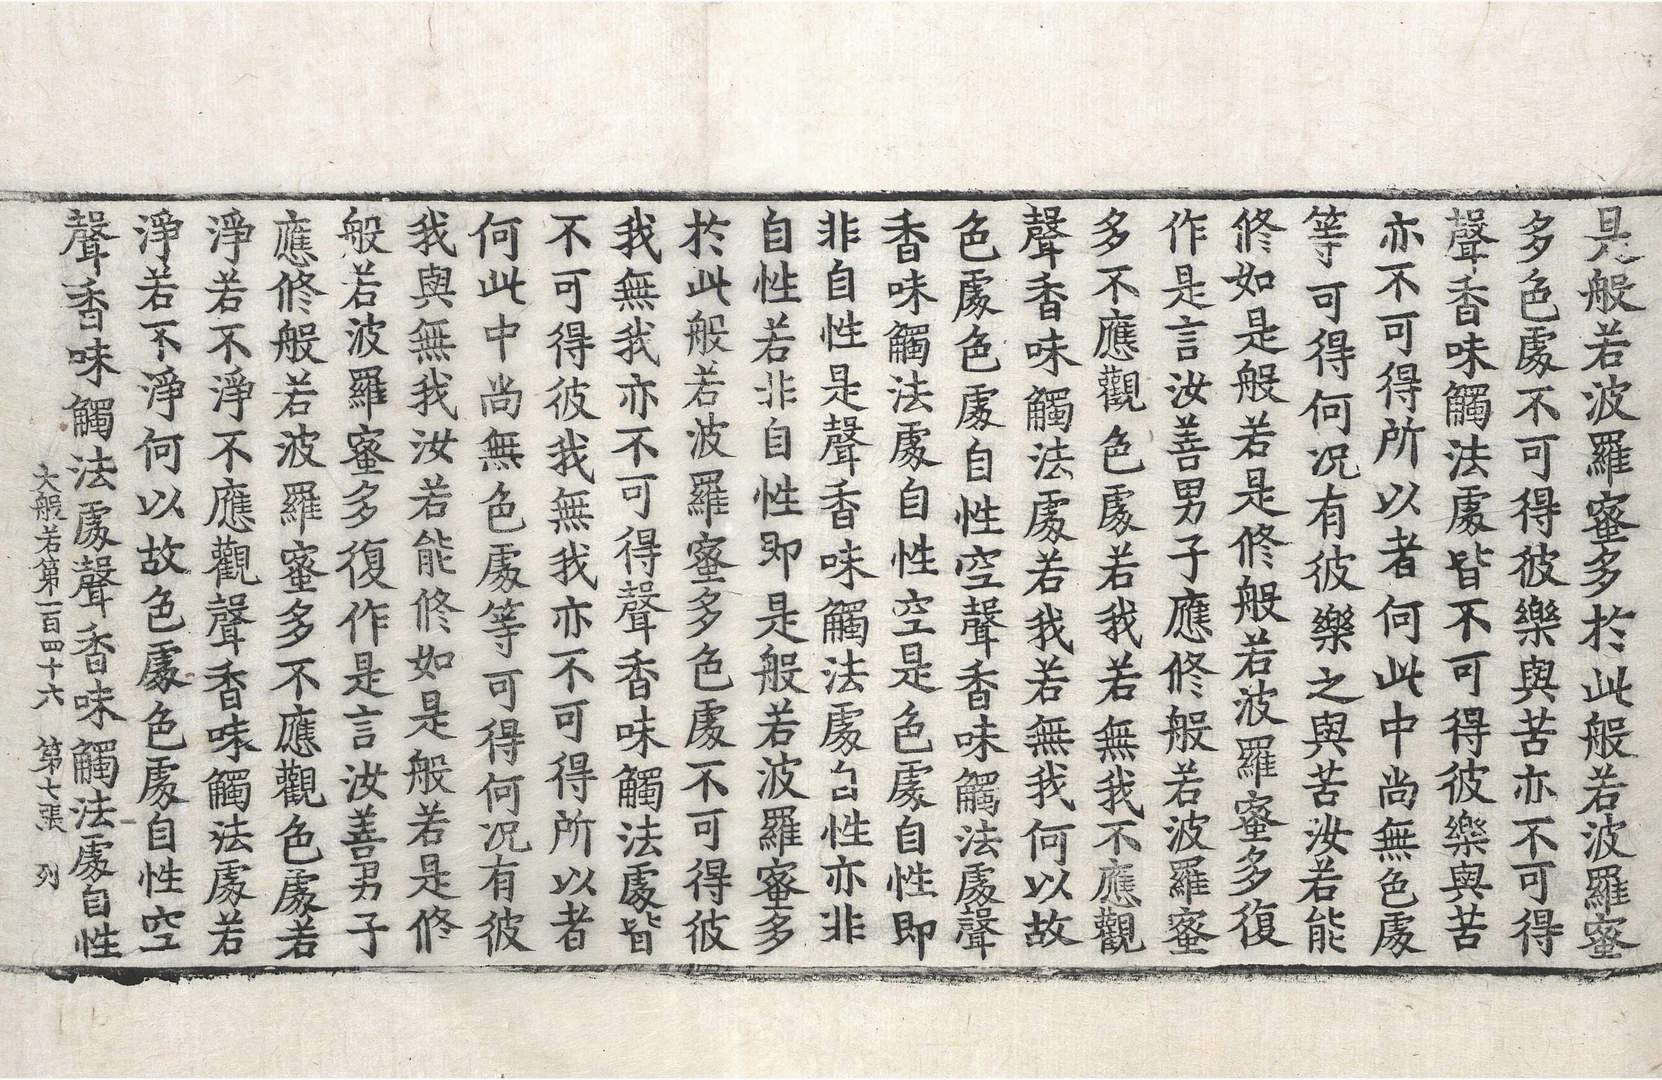 是般若波羅蜜多於此般若波羅蜜
多色處不可得彼樂與苦亦不可得
聲香味觸法處皆不可得彼樂與苦
亦不可得所以者何此中尚無色處
等可得何况有彼樂之與苦汝若能
修如是般若是修般若波羅蜜多復
作是言汝善男子應修般若波羅蜜
多不應觀色處若我若無我不應觀
聲香味觸法處若我若無我何以故
色處色處自性空聲香味觸法處聲
香味觸法處自性空是色處自性即
非自性是聲香味觸法處自性亦非
自性若非自性即是般若波羅蜜多
於此般若波羅蜜多色處不可得彼
我無我亦不可得聲香味觸法處皆
不可得彼我無我亦不可得所以者
何此中尚無色處等可得何况有彼
我與無我汝若能修如是般若是修
般若波羅蜜多復作是言汝善男子
應修般若波羅蜜多不應觀色處若
淨若不淨不應觀聲香味觸法處若
淨若不淨何以故色處色處自性空
聲香味觸法處聲香味觸法處自性
大般若第一百四十六 第七張 列